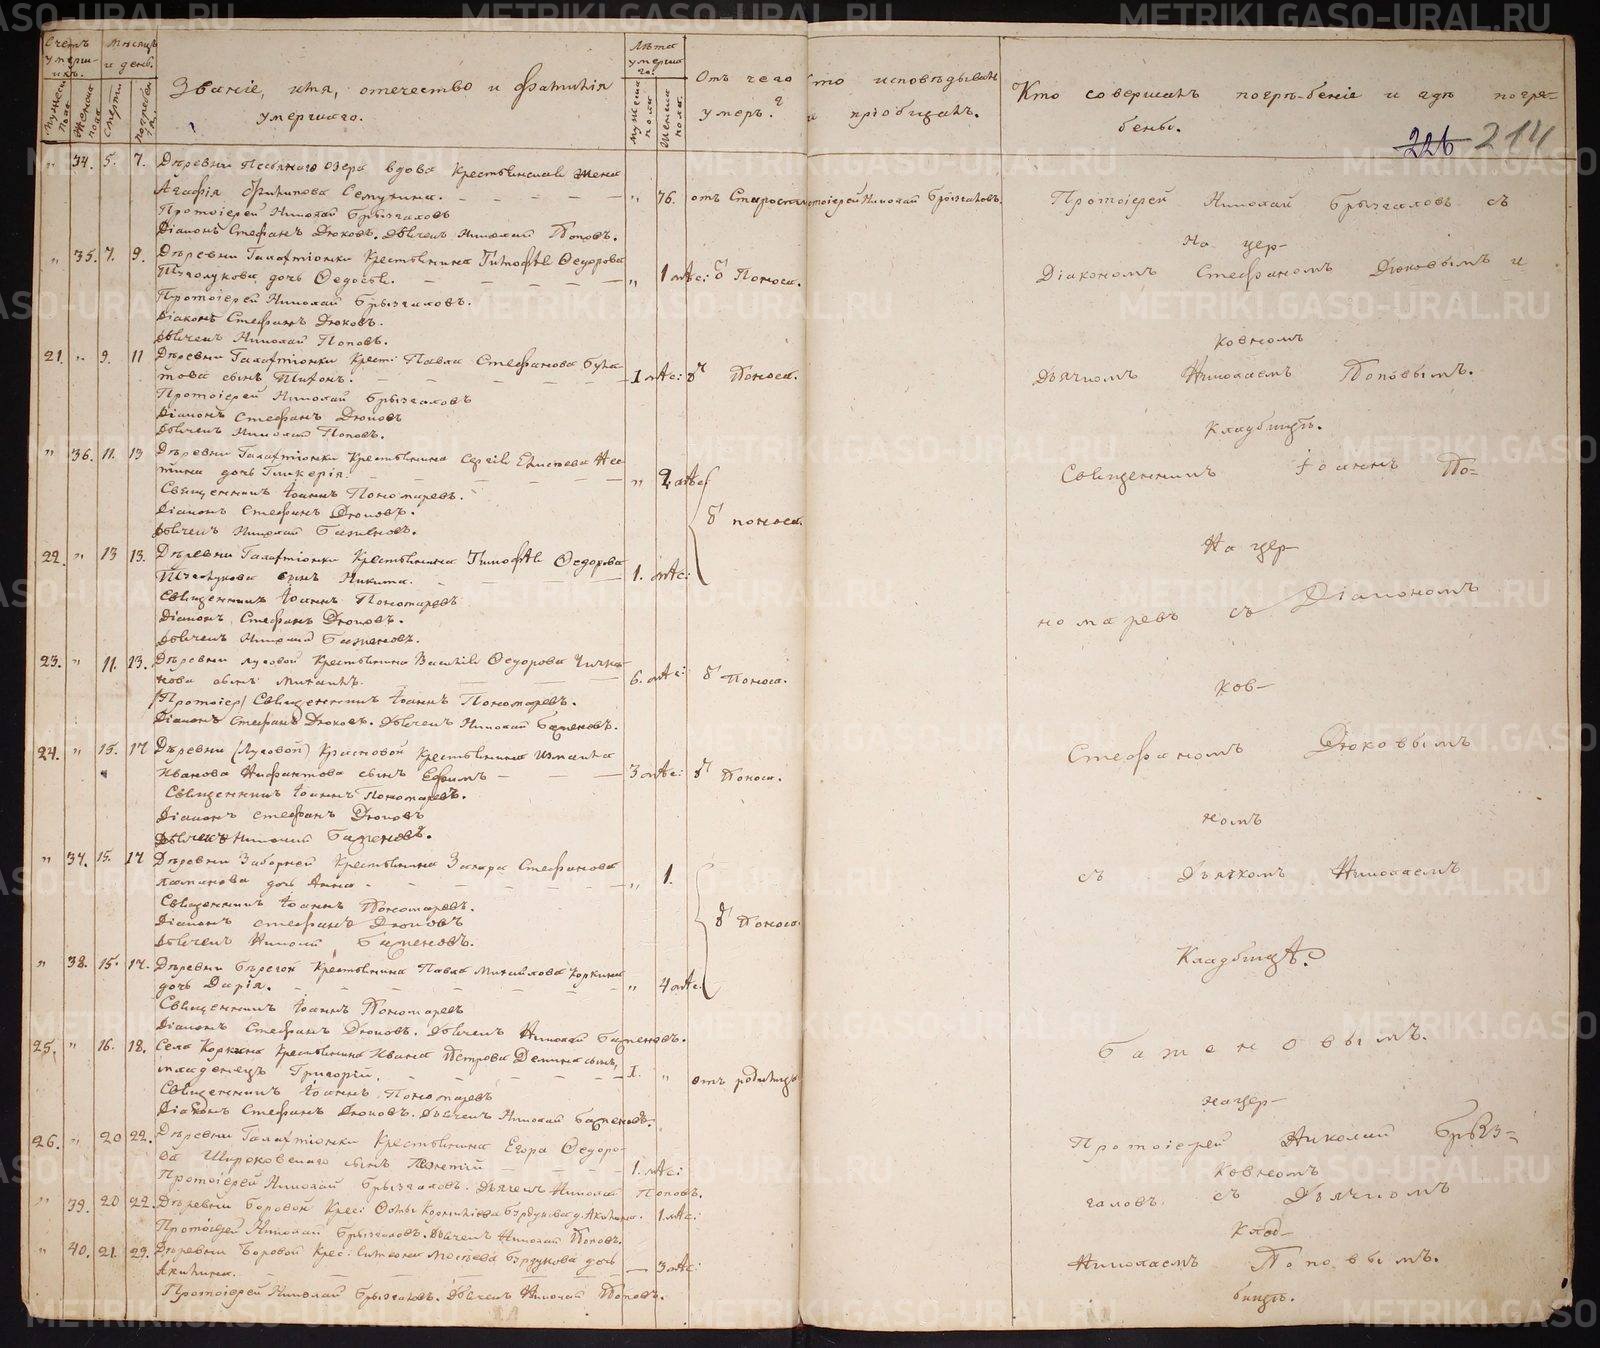 Счетъ умерш-ихъ.
Мѣсяцъ и день.
Званіе, имя, отечество и фамилія умершаго.
Лѣта умерша-го.
Отъ чего умеръ?
Кто исповѣдывалъ и пріобщалъ.
Кто совершалъ погрѣ-беніе и гдѣ погре-
бены.
Мужеска пола
Женска пола
Смерти
Мужеска пола
Женска пола
226 214
" 34. 5. 7. Деревни озера вдова Крестьянская жена
Агафія Филипова " 76. отъ Старости Протоіерей Николай Брызгаловъ.
Протоіерей Николай Брызгаловъ
Діаконъ Стефанъ Дюковъ. Дьячекъ Николай Поповъ.
" 35. 7. 9. Деревни Галактіонки Крестьянина Тимофѣя Ѳедорова
дочь Ѳедосія. " 1 мѣс: Поноса.
Протоіерей Николай Брызгаловъ.
Діаконъ Стефанъ Дюковъ.
Дьячекъ Николай Поповъ.
21. " 9. 11 Деревни Галактіонки Крест: Павла Стефанова
сынъ Тихонъ. 1 мѣс: Поноса.
Протоіерей Николай Брызгаловъ
Діаконъ Стефанъ Дюковъ
Дьячекъ Николай Поповъ.
" 36. 11. 13 Деревни Галактіонки Крестьянина Сергія
дочь Гликерія. " 2 мѣс
Священникъ Іоаннъ Пономаревъ.
Діаконъ Стефанъ Дюковъ. поноса.
Дьячекъ Николай Баженовъ.
22. " 13 13. Деревни Галактіонки Крестьянина Тимофѣя Ѳедорова
сынъ Никита. 1. мѣс:
Священникъ Іоаннъ Пономаревъ
Діаконъ Стефанъ Дюковъ.
Дьячекъ Николай Баженовъ.
23. " 11. 13. Деревни Луговой Крестьянина Василія Ѳедорова
сынъ Михаилъ. 6. мѣс: Поноса.
(Протоіер) Священникъ Іоаннъ Пономаревъ.
Діаконъ Стефанъ Дюковъ. Дьячекъ Николай Баженовъ.
24. " 15. 17 Деревни (Луговой) Красновой Крестьянина Измаила
Иванова Нифантова сынъ Ефимъ 3 мѣс: Поноса.
Священникъ Іоаннъ Пономаревъ.
Діаконъ Стефанъ Дюковъ
Дьячекъ Николай Баженовъ.
" 37. 15. 17 Деревни Заборней Крестьянина Захара Стефанова
дочь Анна " 1.
Священникъ Іоаннъ Пономаревъ.
Діаконъ Стефанъ Дюковъ Поноса
Дьячекъ Николай Баженовъ.
" 38. 15. 17. Деревни Крестьянина Павла Михайлова Коркина
дочь Дарія. " 4 мѣс.
Священникъ Іоаннъ Пономаревъ
Діаконъ Стефанъ Дюковъ. Дьячекъ Николай Баженовъ.
25. " 16. 18. Села Коркина Крестьянина Ивана Петрова Демина сынъ,
младенецъ Григорій. 1. " отъ родимца
Священникъ Іоаннъ Пономаревъ
Діаконъ Стефанъ Дюковъ. Дьячекъ Николай Баженовъ.
26. " 20 22. Деревни Галактіонки Крестьянина Егора Ѳедоро-
ва Широковскаго сынъ 1. мѣс:
Протоіерей Николай Брызгаловъ. Дьячекъ Николай Поповъ.
" 39. 20 22. Деревни Боровой Крес: 1 мѣс:
Протоіерей Николай Брызгаловъ. Дьячекъ Николай Поповъ.
" 40. 21. 23. Деревни Боровой Крес: Симеона Бурдукова дочь
Акилина. 3 мѣс:
Протоіерей Николай Брызгаловъ. Дьячекъ Николай Поповъ.
Протоіерей Николай Брызгаловъ съ
На цер-
Діакономъ Стефаномъ Дюковымъ и
ковномъ
Дьячкомъ Николаемъ Поповымъ.
Кладбищѣ.
Священникъ Іоаннъ По-
На цер-
номаревъ съ Діакономъ
ков-
Стефаномъ Дюковымъ
номъ
съ Дьячкомъ Николаемъ
Кладбищѣ.
Баженовымъ.
на цер-
Протоіерей Николай Брыз-
ковномъ
галовъ съ Дьячкомъ
Клад-
Николаемъ Поповымъ.
бищѣ.
METRIKI.GASO-URAL.RU